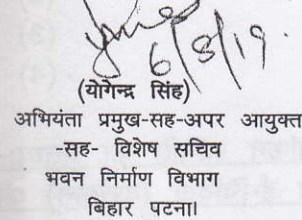 6/8/19.
(योगेन्द्र सिंह)
अभियंता प्रमुख-सह-अपर आयुक्त
-सह- विशेष सचिव
भवन निर्माण विभाग
बिहार पटना।